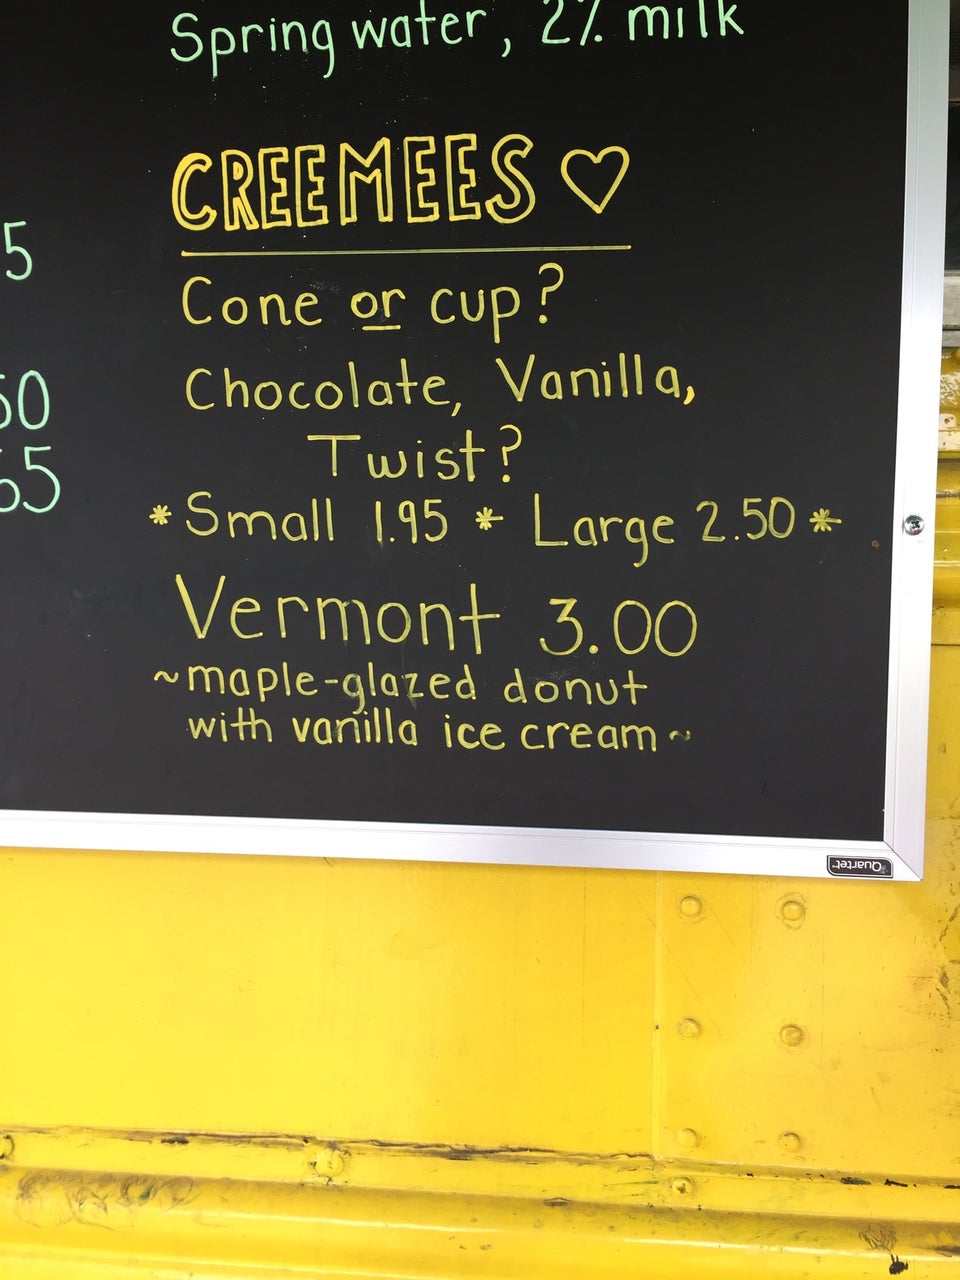 Spring water, 2% milk
CREEMEES ♡
5
Cone or cup?
Chocolate, Vanilla,
50
Twist?
55
*Small 1.95 * Large 2.50*
Vermont 3.00
~maple-glazed donut
with vanilla ice cream~
Quartet